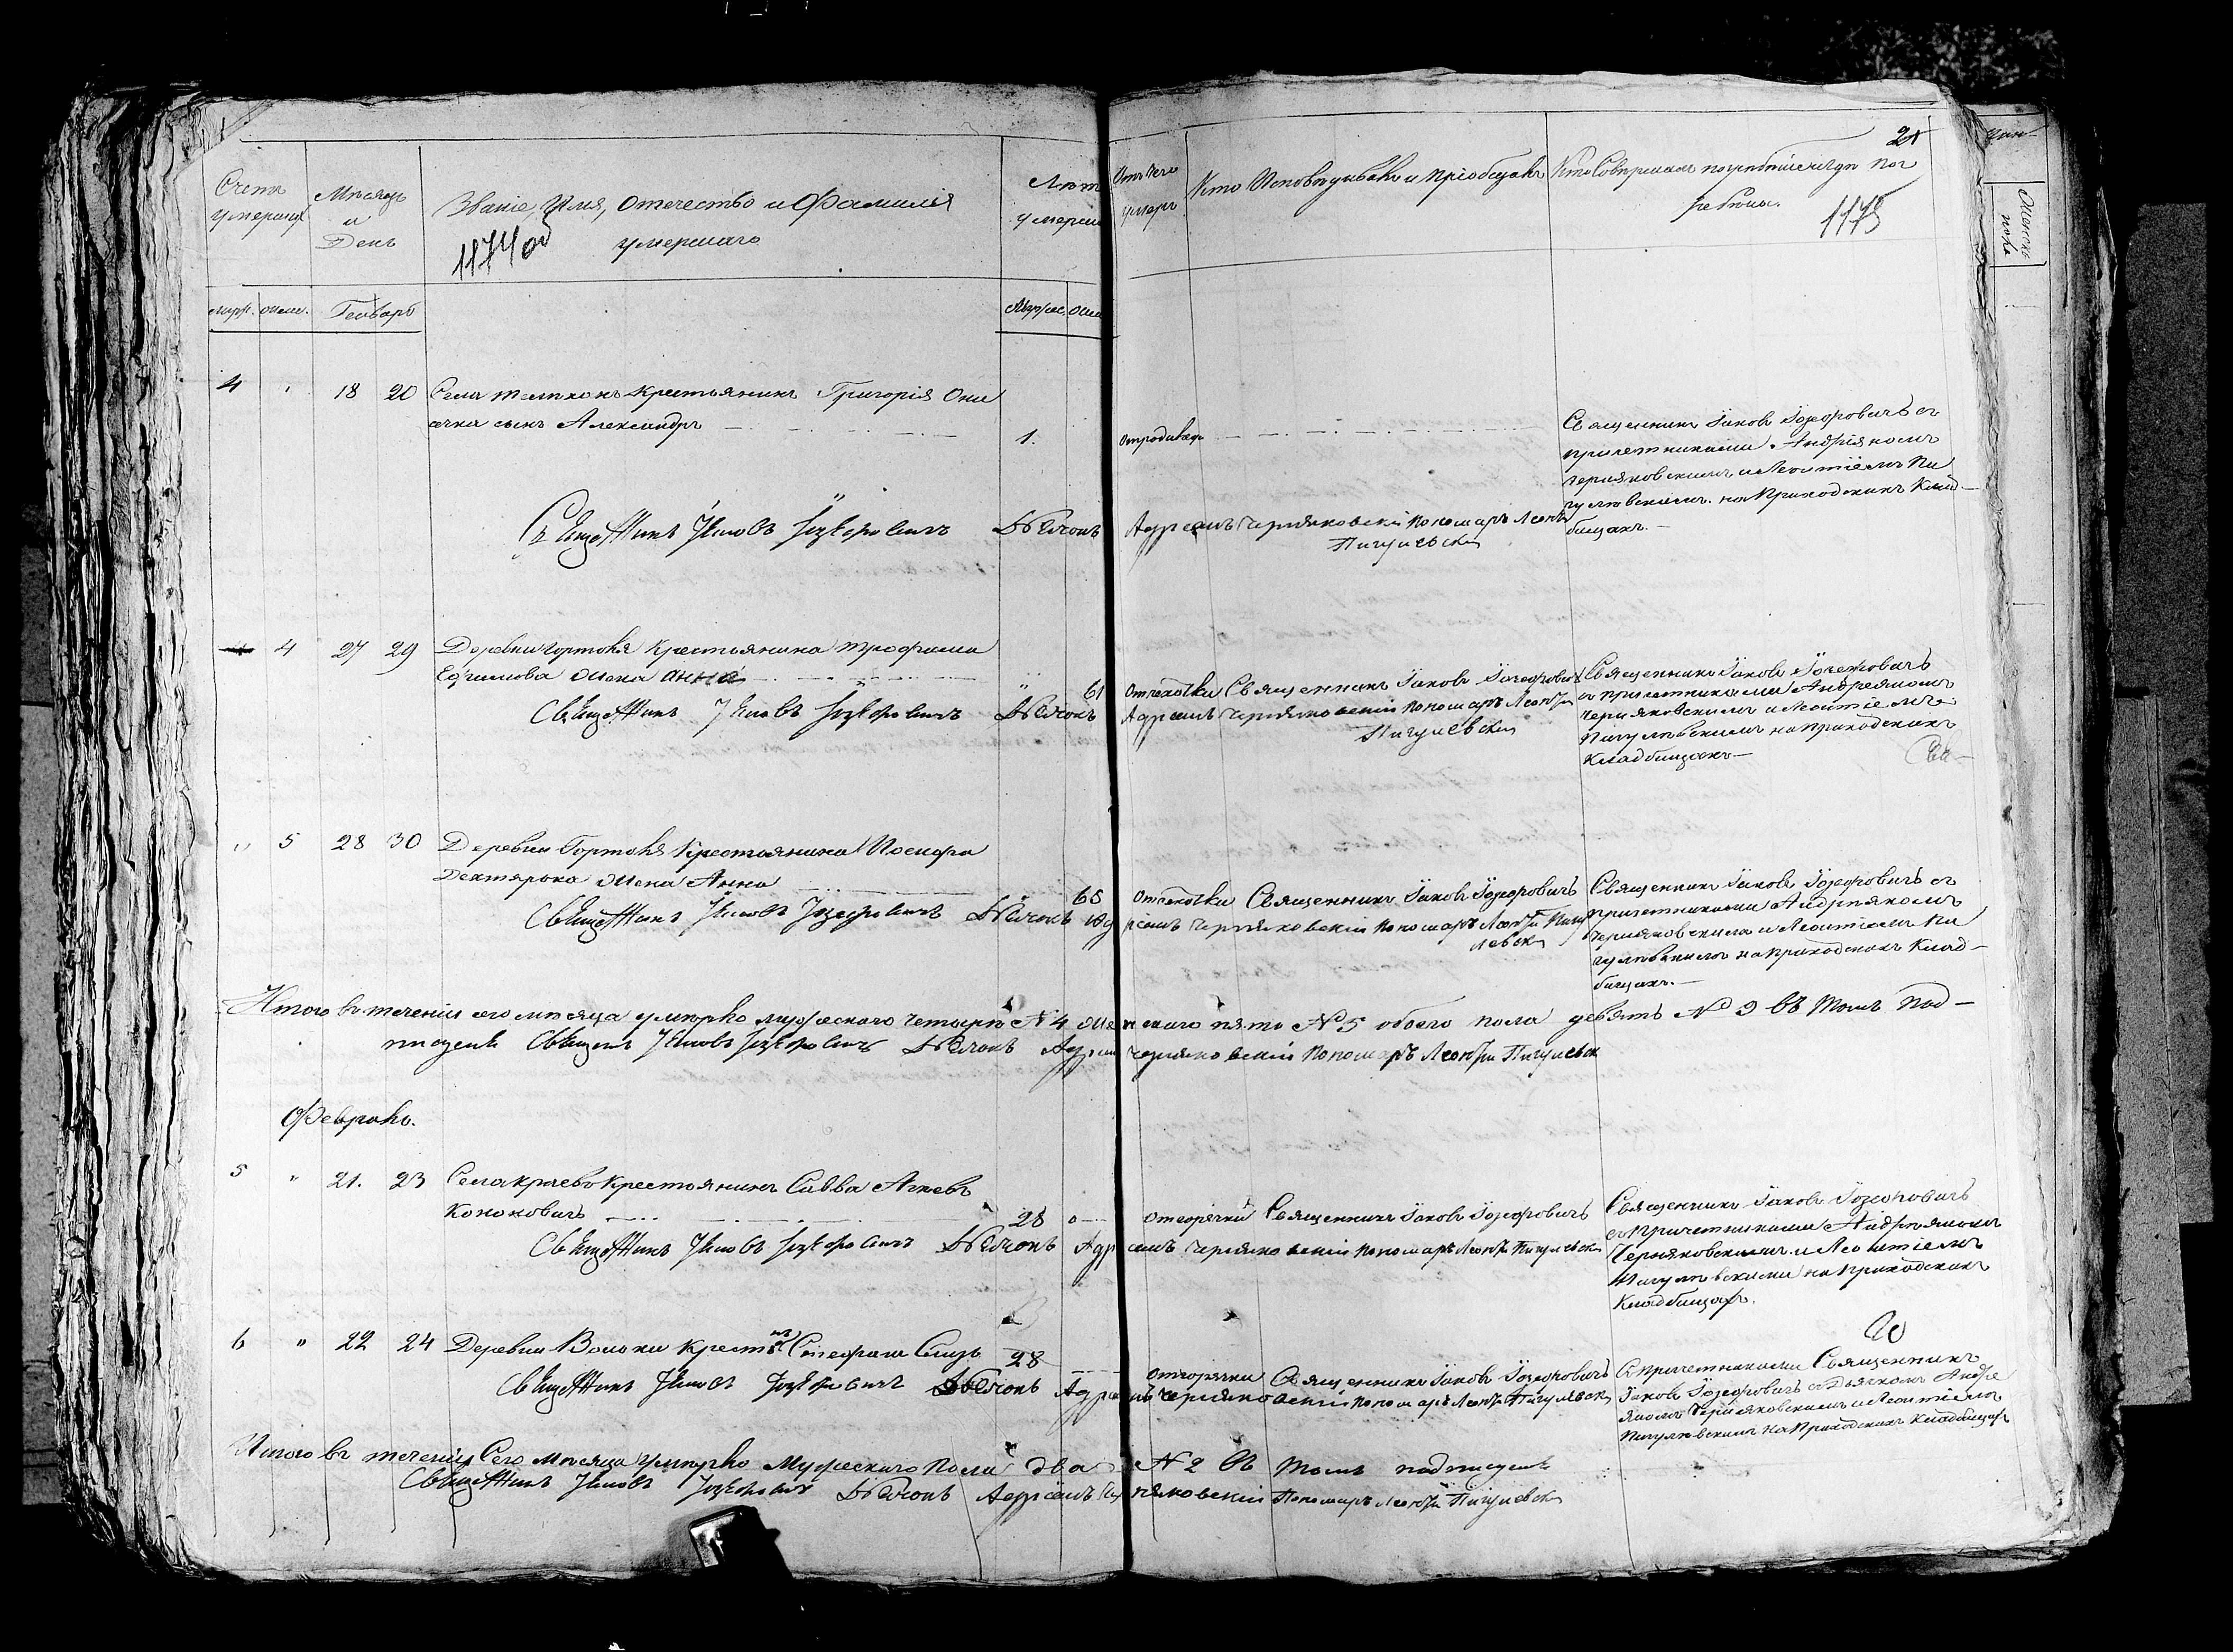 Счетъ умершихъ
Мѣсяцъ и День
Званіе, Имя, Отечество и Фамилія умершаго
1174об
Лѣта умерш
Отъ чего умеръ
Кто Исповѣдывалъ и пріобщалъ
Кто Совершалъ погребеніе и гдѣ погребены.
21
1175
мужс. женс. Генварь
Мужес. женс
4 18 20 Села Телеханъ крестьянина Григорія Они
сычка сынъ Александръ 1.
отъ родимца
Священникъ Іаковъ Іозефовичъ съ
причетниками Андріяномъ
Черняковскимъ и Леонтіемъ Пи
гулевскимъ на Приходскихъ Клад-
бищахъ.
Священникъ Іяковъ Іозефовичъ Дьячокъ Адріанъ Черняковскій Пономарь Леонтій
Пигулевскій
4 27 29 Деревни Гортоля Крестьянина Трофима
Ефимова жена Анна 61
отъ чахотки Священникъ Іаковъ Іозефовичъ
Священникъ Іаковъ Іозефовичъ
съ причетниками Андреяномъ
Черняковскимъ и Леонтіемъ
Пигулевскимъ на приходскихъ
Кладбищахъ
Священникъ Іяковъ Іозефовичъ Дьячокъ Адріанъ Черняковскій Пономарь Леонтій
Пигулевскій
" 5 28 30 Деревни Гортоля Крестьянина
Дехтярока жена Анна 65
отъ чахотки Священникъ Іаковъ Іозефовичъ
Священникъ Іаковъ Іозефовичъ съ
причетниками Андріяномъ
Черняковскимъ и Леонтіемъ Пи
гулевскимъ на приходскихъ Клад-
бищахъ.
Священникъ Іяковъ Іозефовичъ Дьячокъ Адріанъ Черняковскій Пономарь Леонтій Пигу
левскій
Итого въ теченіи сего мѣсяца умерло мужескаго четыре № 4, женскаго пять № 5 обоего пола девять № 9 въ томъ под-
писуемъ Священ Іяковъ Іозефовичъ Дьячокъ Адріанъ Черняковскій Пономарь Леонтій Пигулевск
Февраль.
5 " 21. 23 Села Краево Крестьянинъ Савва Агеевъ
Кононовичъ 28
отъ горячки Священникъ Іаковъ Іозефовичъ
Священникъ Іаковъ Іозефовичъ
съ Причетниками Андріяномъ
Черняковскимъ и Леонтіемъ
Пигулевскимъ на Приходскихъ
Кладбищахъ.
Священникъ Іяковъ Іозефовичъ Дьячокъ Адріанъ Черняковскій Пономарь Леонтій Пигулевскій
6 " 22 24 Деревни Вольки Крестьян Стефанъ 28
отъ горячки Священникъ Іаковъ Іозефовичъ
Съ Причетниками Священникъ
Іаковъ Іозефовичъ съ Дьячкомъ Андре
яномъ Черняковскимъ и Леонтіемъ
Пигулевскимъ на Приходскихъ Кладбищахъ
Священникъ Іяковъ Іозефовичъ Дьячокъ Адріанъ Черняковскій Пономарь Леонтій Пигулевскій
Итого въ теченіи Сего Мѣсяца умерло Мужескаго Пола два № 2 въ томъ подписуемъ
Священникъ Іяковъ Іозефовичъ Дьячокъ Адріанъ Черняковскій Пономарь Леонтій Пигулевскій